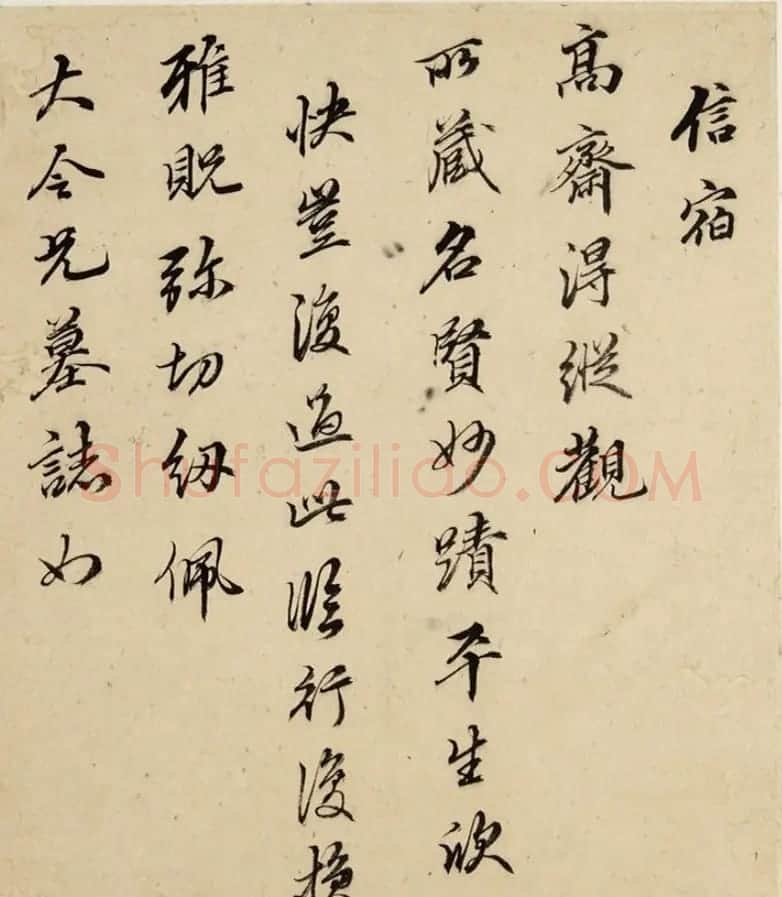 信宿
高齋得縱觀
所藏名賢妙蹟平生欣
快豈復過此臨行復損
雅貺弥切紉佩
大令兄墓誌如
Shufaziliao.COM